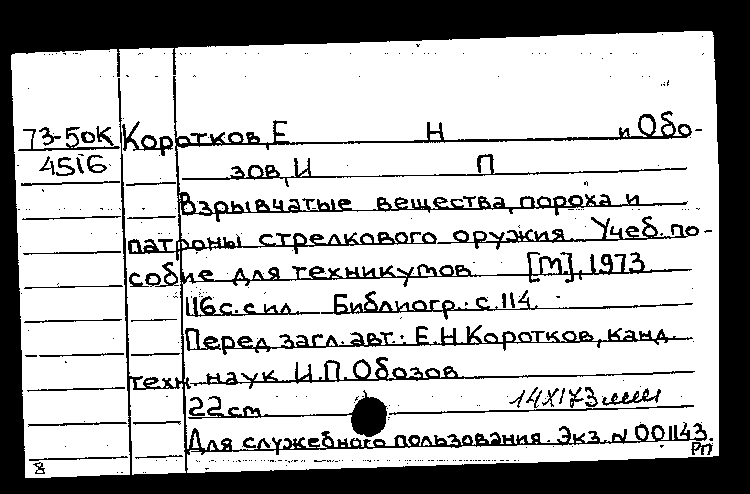 73-50К Коротков, Е Н и Обо-
4516 зов, И П
Взрывчатые вещества, пороха и
патроны стрелкового оружия. Учеб. по-
собие для техникумов. [М], 1973
116 с. с ил. Библиогр.: с. 114.
Перед загл. авт.: Е.Н. Коротков, канд.
техн. наук И.П. Обозов
22 см. 14 XI 73
Для служебного пользования. Экз. N 001143.
РП
8